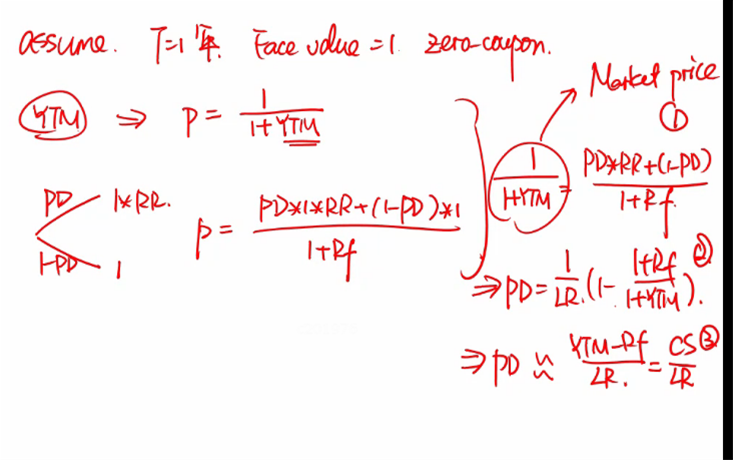 assume. T=1年. Face value = 1. zero-coupon.
Market price
①
YTM ⇒ p = 1/(1+YTM)
1/(1+YTM) = (PD*RR+(1-PD))/(1+Rf)
PD 1*RR.
1-PD 1
p = (PD*1*RR+(1-PD)*1)/(1+Rf)
⇒ PD = 1/LR.(1- (1+Rf)/(1+YTM)). ②
⇒ PD ≈ (YTM-Rf)/LR. = CS/LR ③